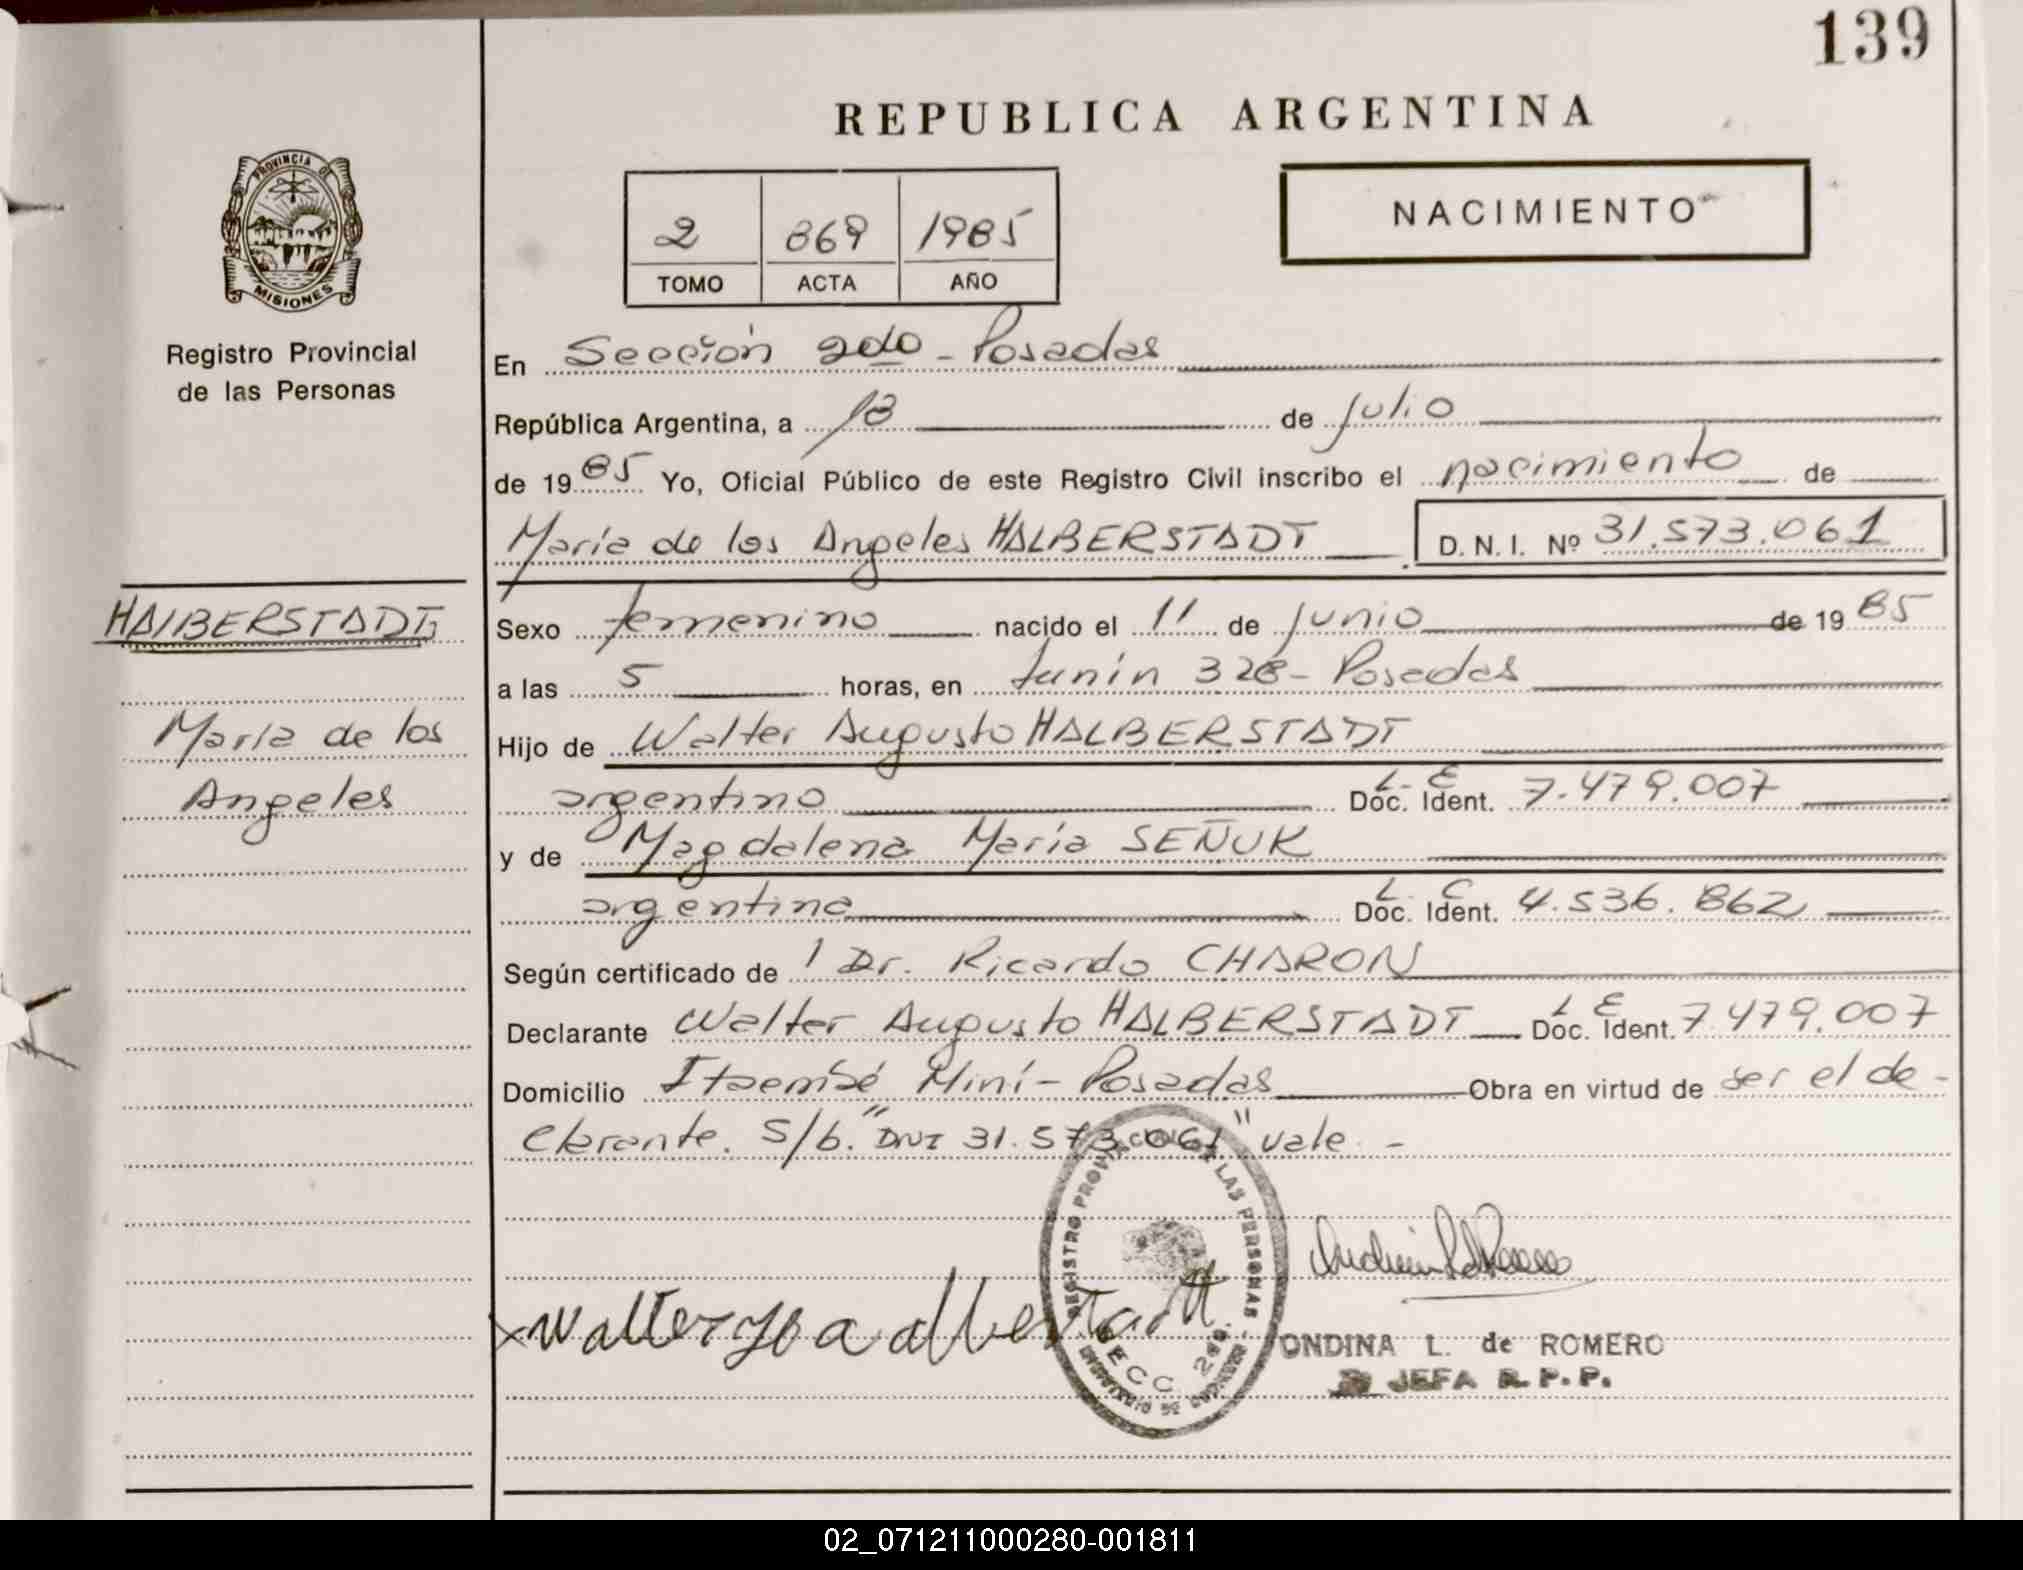 139
REPUBLICA ARGENTINA
PROVINCIA DE
MISIONES
Registro Provincial
de las Personas
2 869 1985
TOMO ACTA AÑO
NACIMIENTO
En Sección 2do - Posadas
República Argentina, a 18 de Julio
de 1985 Yo, Oficial Público de este Registro Civil inscribo el nacimiento de
María de los Angeles HALBERSTADT D. N. I. Nº 31.573.061
HALBERSTADT
María de los
Angeles
Sexo femenino nacido el 11 de Junio de 1985
a las 5 horas, en Junín 328 - Posadas
Hijo de Walter Augusto HALBERSTADT
argentino L. E Doc. Ident. 7.479.007
y de Magdalena María SEÑUK
argentina L. C Doc. Ident. 4.536.862
Según certificado de 1 Dr. Ricardo CHARON
Declarante Walter Augusto HALBERSTADT L E Doc. Ident. 7.479.007
Domicilio Itaembé Miní - Posadas Obra en virtud de ser el de-
clarante. S/b. "DNI 31.573.061" vale. -
REGISTRO PROVINCIAL DE LAS PERSONAS
SECC. 2da.
ONDINA L. de ROMERO
JEFA R. P. P.
02_071211000280-001811